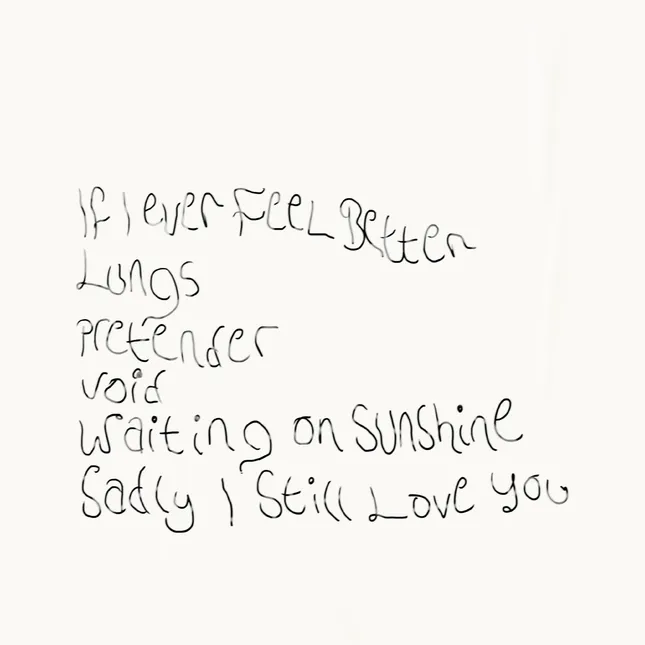 If I ever Feel Better
Lungs
pretender
void
waiting on Sunshine
Sadly I Still Love you